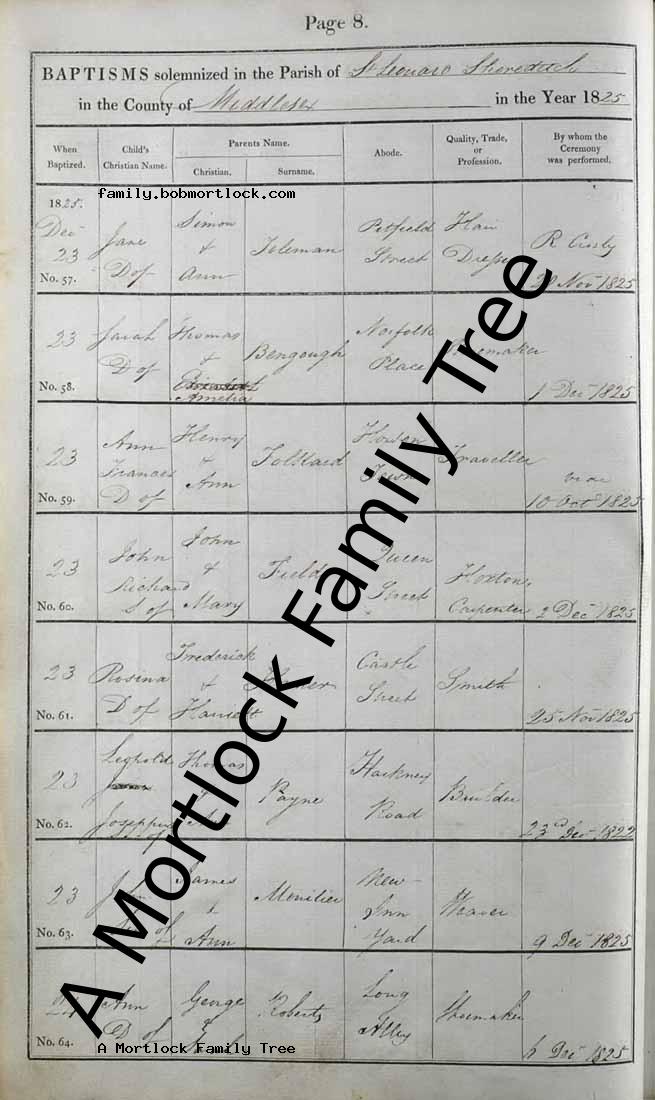 Page 8.
BAPTISMS solemnized in the Parish of St Leonard Shoreditch
in the County of Middlesex in the Year 1825
When Baptized. Child's Christian Name. Parents Name. Abode. Quality, Trade, or Profession. By whom the Ceremony was performed.
Christian. Surname.
1825.
family.bobmortlock.com
Dec 23 Jane D of Simon & Ann Toleman Pitfield Street Hair R Crosby
No. 57. 1825
23 Sarah D of Thomas & Amelia Bengough Norfolk Place
No. 58. 1 Dec 1825
23 Ann Frances D of Henry & Ann Folkard Traveller
No. 59. 10 Oct 1825
23 John Richard S of John & Mary Field Queen Street Hoxton, Carpenter
No. 60. 2 Dec 1825
23 Rosina D of Frederick & Harriett Castle Street Smith
No. 61. 25 Nov 1825
23 Leopold Thomas & Payne Hackney Road Builder
No. 62. 23rd Dec 1822
23 James & Ann New Inn Yard Weaver
No. 63. 9 Dec 1825
24 Ann D of George & Roberts Long Alley Shoemaker
No. 64. Dec 1825
A Mortlock Family Tree
A Mortlock Family Tree